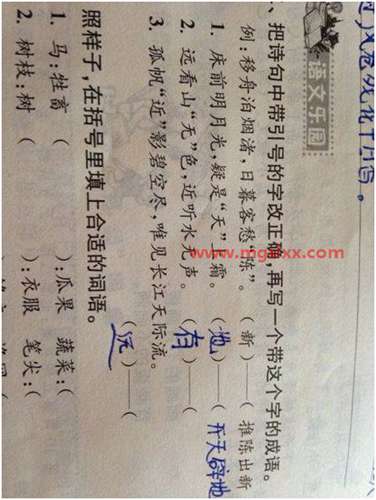 语文乐园
、把诗句中带引号的字改正确,再写一个带这个字的成语。
例:移舟泊烟渚,日暮客愁“陈”。 (新)——(推陈出新
1. 床前明月光,疑是“天”上霜。 (地)——(开天辟地
2. 远看山“无”色,近听水无声。 (有)——(
3. 孤帆“近”影碧空尽,唯见长江天际流。 (远)——(
照样子,在括号里填上合适的词语。
1. 马:牲畜 ( ):瓜果 蔬菜:(
2. 树枝:树 ( ):衣服 笔尖:(